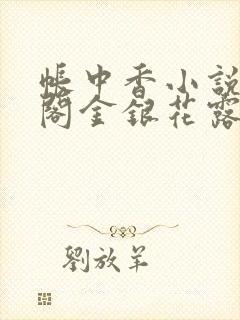 帳中香小說
閣金銀花露
劉放羊